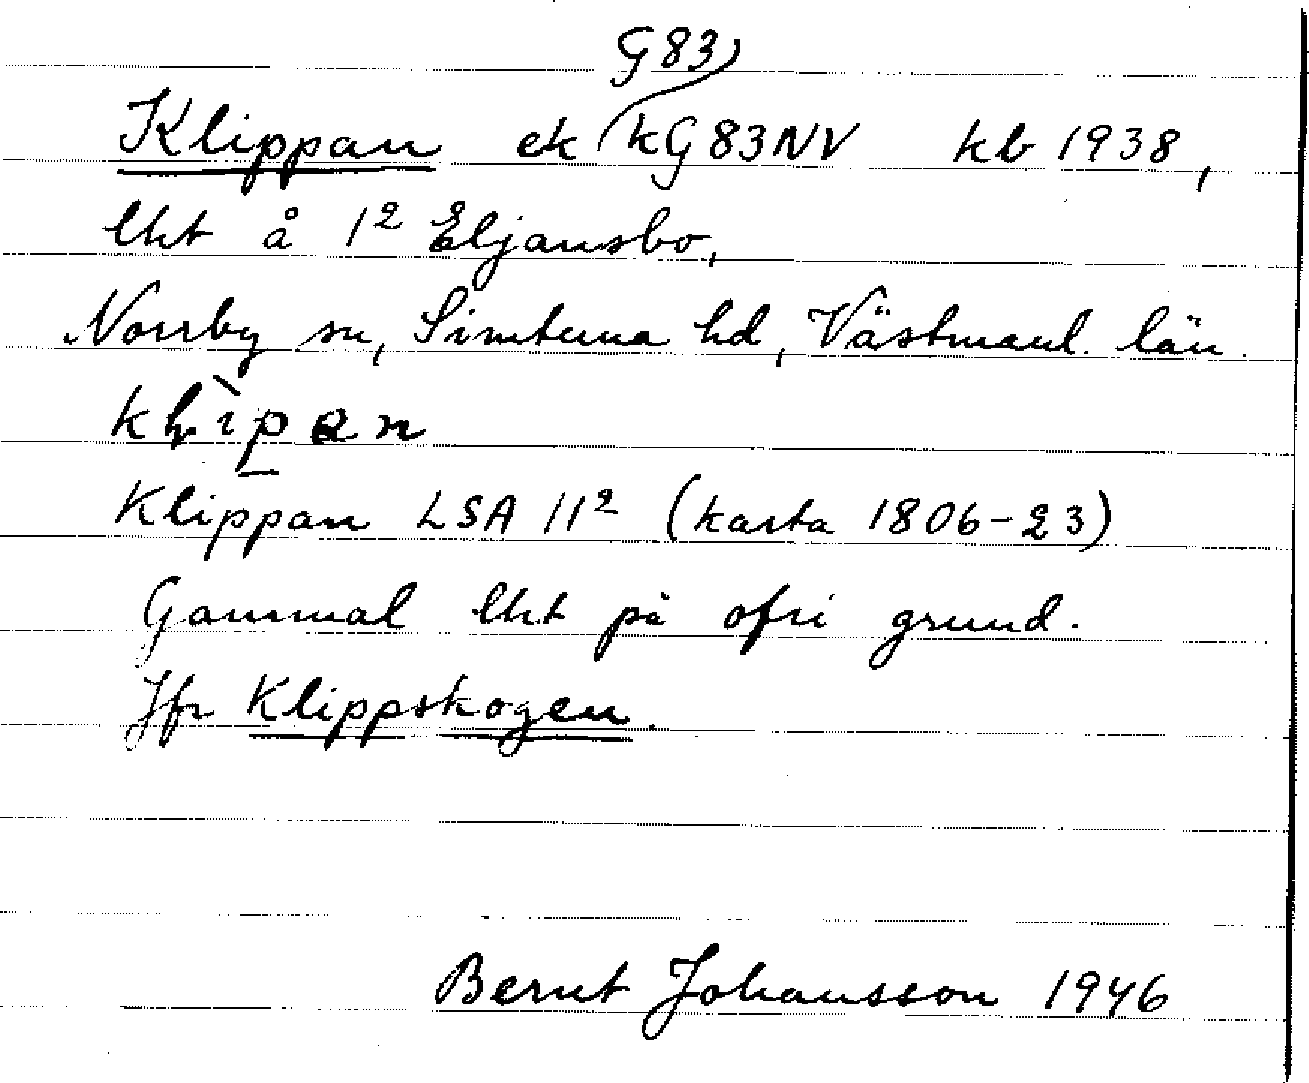 G83
Klippan ek kG83NV kb 1938,
lht å 1² Eljansbo,
Norrby sn, Simtuna hd, Västmanl. län.
Klippan LSA 11² (karta 1806-23)
Gammal lht på ofri grund.
Jfr Klippskogen.
Bernt Johansson 1946